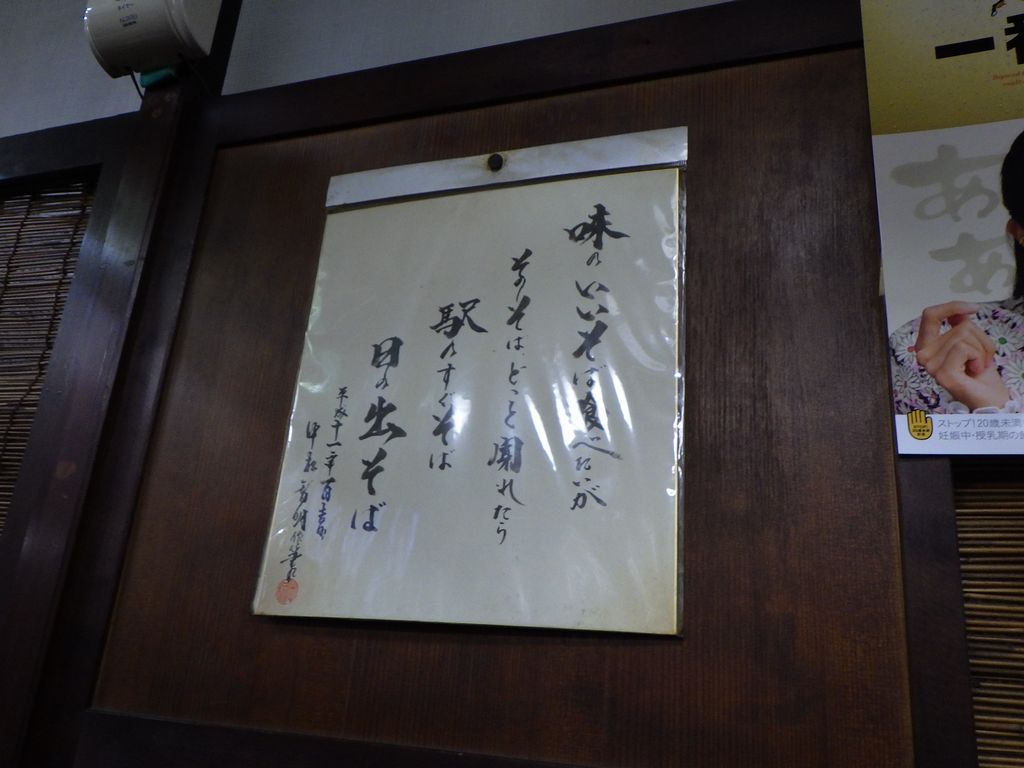 味のいいそば食べたいが
そのそばどこと聞れたら
駅のすぐそば
日の出そば
平成十一年百吉
一番
ああ
STOP!
ストップ!20歳未満
妊娠中・授乳期の飲